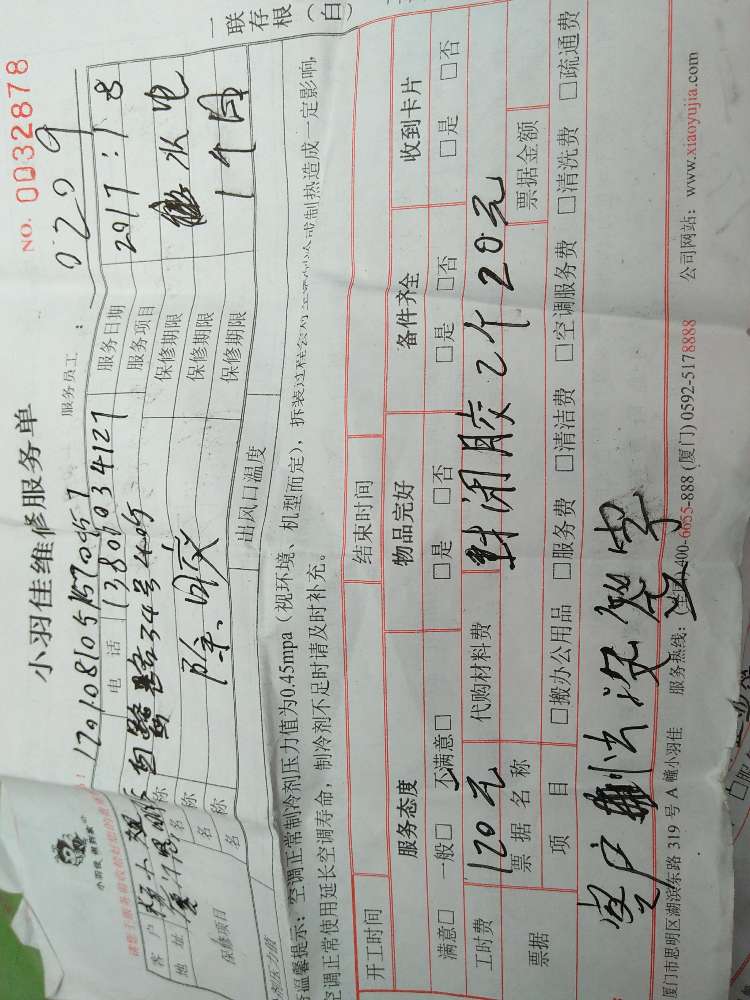 小羽佳维修服务单
NO. 0032878
一联存根（白）
服务员工： 0209
1701081051570957
客户
电话 13806034127
服务日期 2017:1 8
地址 34号405
服务项目 水电
保修项目
名称
保修期限 1个月
名称 除胶
保修期限
名称
保修期限
出风口温度
温馨提示：空调正常制冷剂压力值为0.45mpa（视环境、机型而定），拆装过程会对
制热造成一定影响，
空调正常使用延长空调寿命，制冷剂不足时请及时补充。
开工时间
结束时间
服务态度 物品完好 备件齐全 收到卡片
满意□ 一般□ 不满意□ □是 □否 □是 □否 □是 □否
工时费 120元 代购材料费 封闭胶 2个 20元
票据 票据名称 票据金额
项目 □搬办公用品 □服务费 □清洁费 □空调服务费 □清洗费 □疏通费
客户 没签字
厦门市思明区湖滨东路 319 号 A 幢小羽佳 服务热线：(全国) 400-6655-888 (厦门) 0592-5178888 公司网站：www.xiaoyujia.com